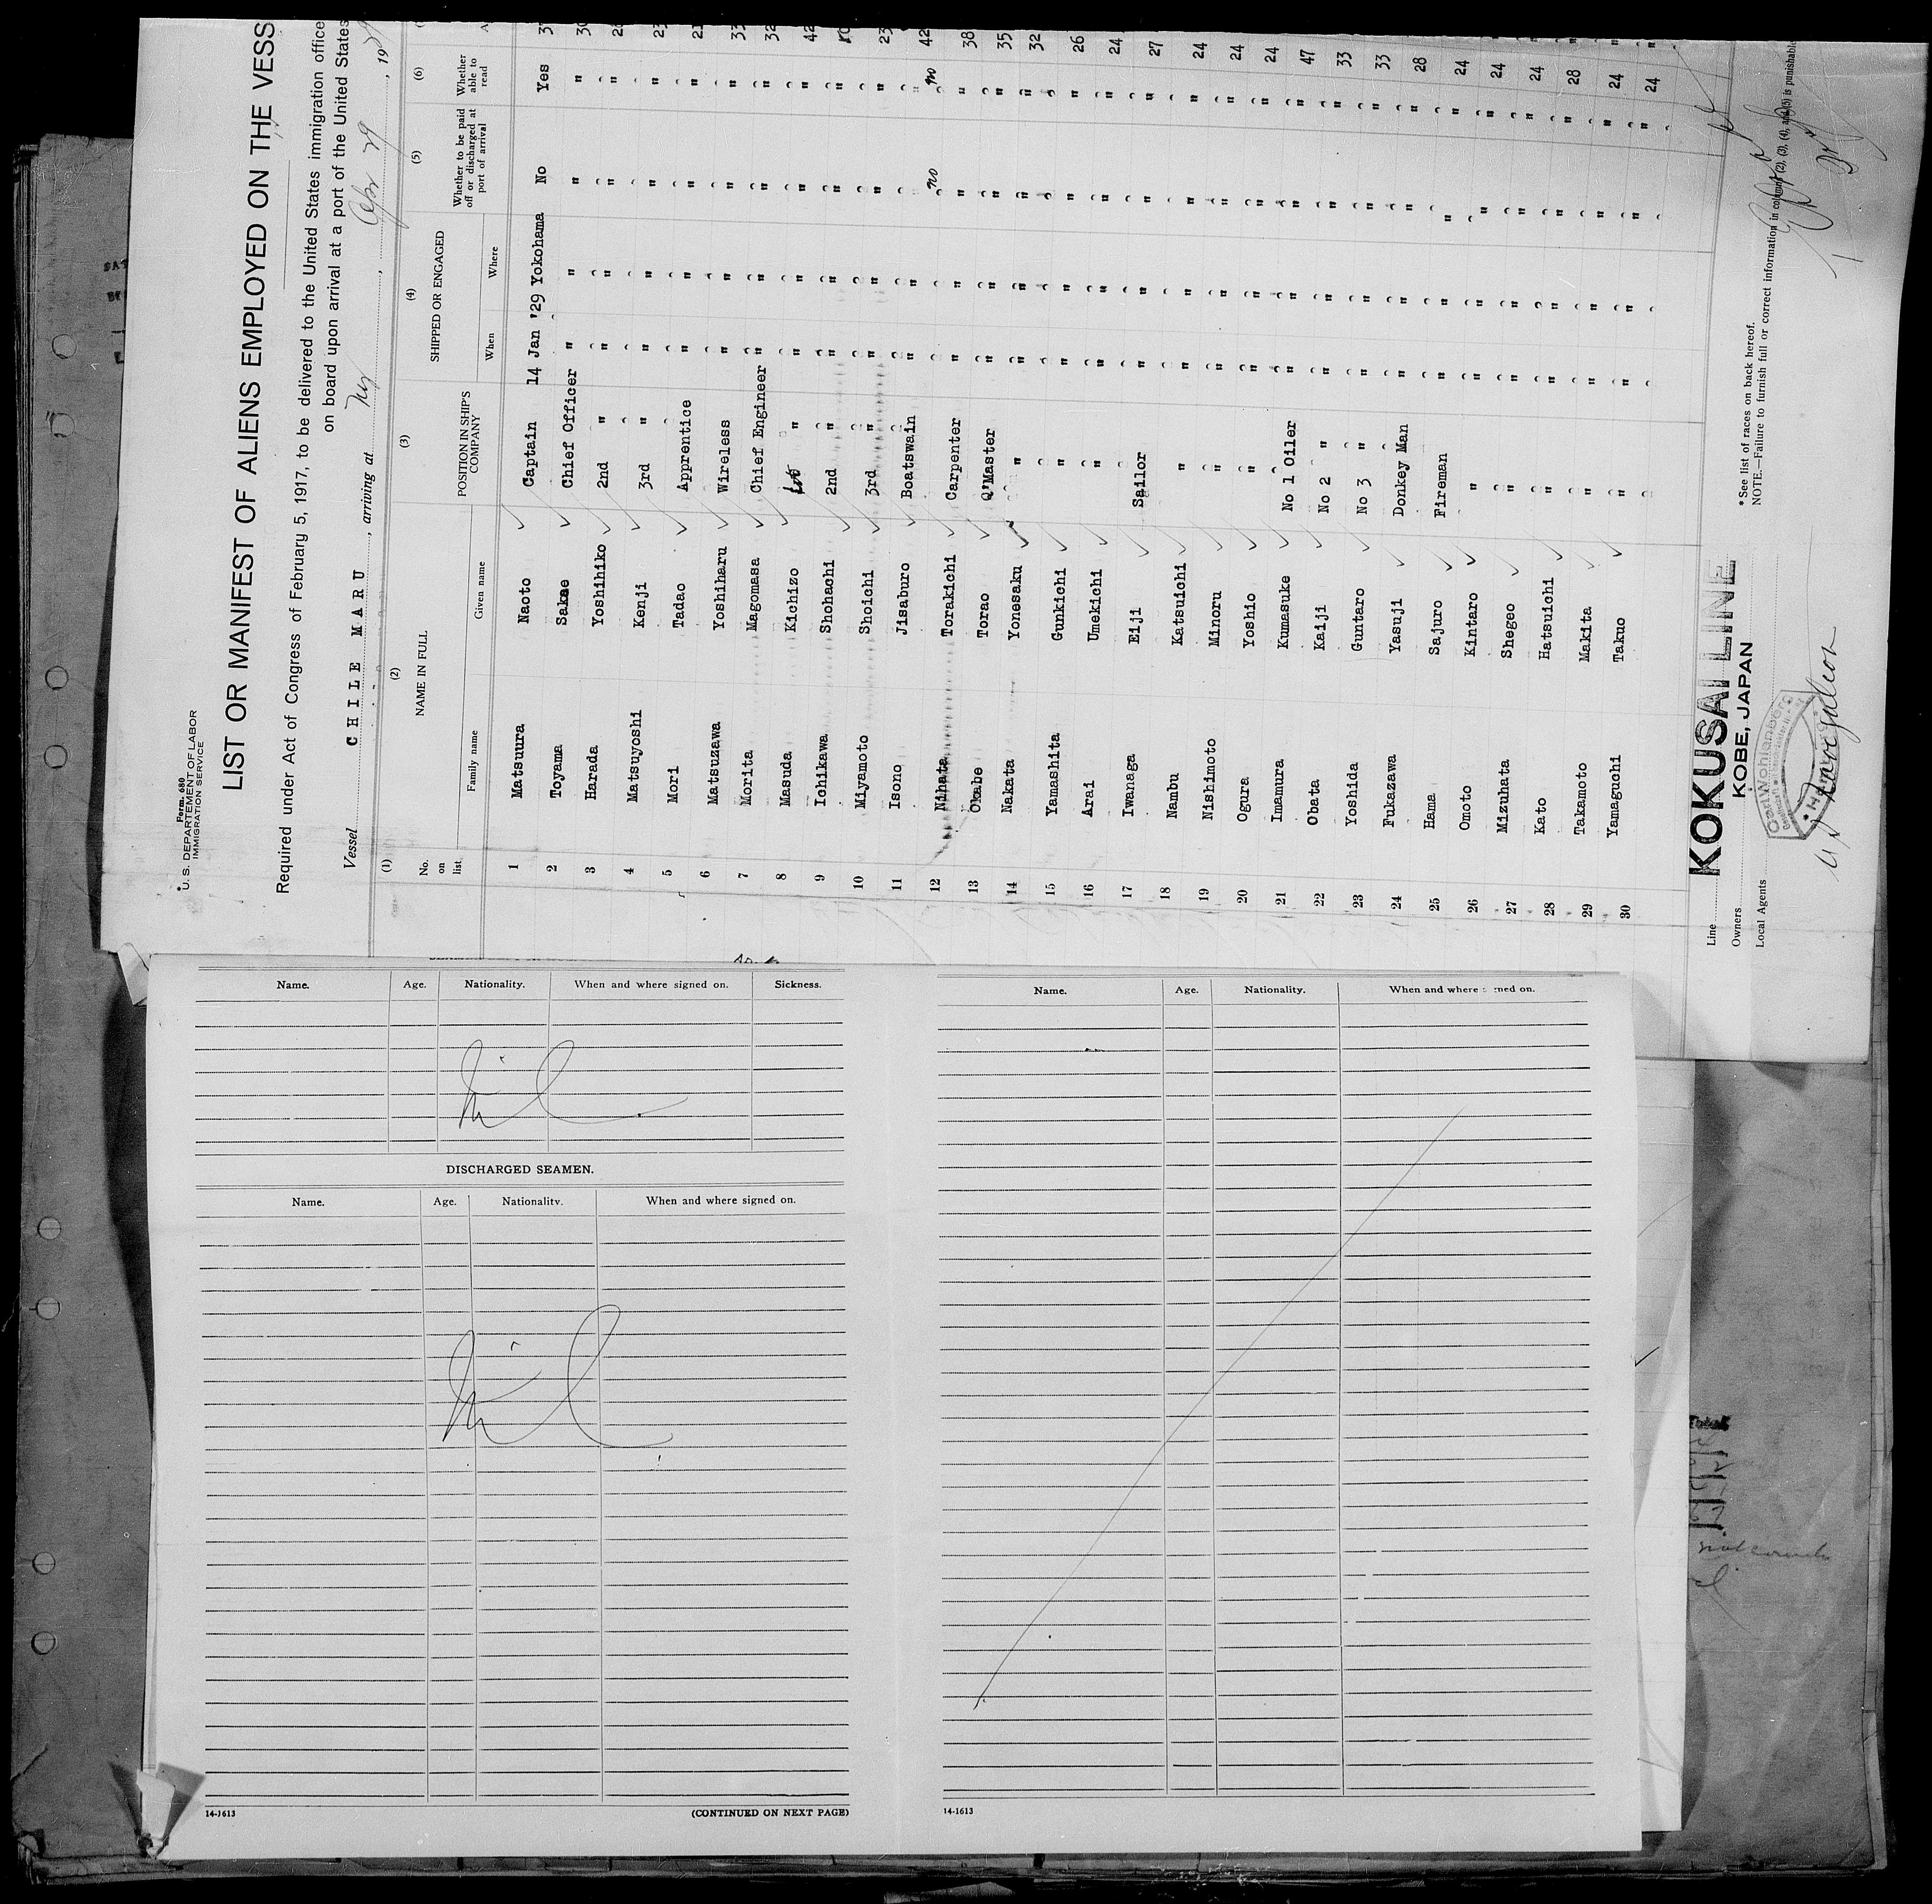 Form 680
U. S. DEPARTMENT OF LABOR
IMMIGRATION SERVICE
LIST OR MANIFEST OF ALIENS EMPLOYED ON THE VESS
Required under Act of Congress of February 5, 1917, to be delivered to the United States immigration office
on board upon arrival at a port of the United States
Vessel CHILE MARU, arriving at ny, Apr 29, 1929
(1) (2) (3) (4) (5) (6)
No. on list NAME IN FULL POSITION IN SHIP'S COMPANY SHIPPED OR ENGAGED Whether to be paid off or discharged at port of arrival Whether able to read
Family name Given name When Where
1 Matsuura Naoto Captain 14 Jan '29 Yokohama No Yes
2 Toyama Sakae Chief Officer " " " "
3 Harada Yoshihiko 2nd " " " " "
4 Matsuyoshi Kenji 3rd " " " " "
5 Mori Tadao Apprentice " " " "
6 Matsuzawa Yoshiharu Wireless " " " "
7 Morita Magomasa Chief Engineer " " " "
8 Masuda Kichizo 1st " " " " "
9 Ichikawa Shohachi 2nd " " " " "
10 Miyamoto Shoichi 3rd " " " " "
11 Isono Jisaburo Boatswain " " " "
12 Nihata Torakichi Carpenter " " no no
13 Okabe Torao Q'Master " " " " 38
14 Nakata Yonesaku " " " " " 35
15 Yamashita Gunkichi " " " " " 32
16 Arai Umekichi " " " " " 26
17 Iwanaga Eiji Sailor " " " " 24
18 Nambu Katsuichi " " " " " 27
19 Nishimoto Minoru " " " " " 24
20 Ogura Yoshio " " " " " 24
21 Imamura Kumasuke No 1 Oiler " " " " 24
22 Obata Kaiji No 2 " " " " " 47
23 Yoshida Guntaro No 3 " " " " " 33
24 Fukazawa Yasuji Donkey Man " " " " 33
25 Hama Sajuro Fireman " " " " 28
26 Omoto Kintaro " " " " " 24
27 Mizuhata Shegeo " " " " " 24
28 Kato Hatsuichi " " " " " 24
29 Takamoto Makita " " " " " 28
30 Yamaguchi Takuo " " " " " 24
Line KOKUSAI LINE
Owners KOBE, JAPAN
Local Agents
*See list of races on back hereof.
NOTE.—Failure to furnish full or correct information in columns (2), (3), (4), and (5) is punishable
Name. Age. Nationality. When and where signed on. Sickness.
Nil
DISCHARGED SEAMEN.
Name. Age. Nationality. When and where signed on.
Nil
14-1613 (CONTINUED ON NEXT PAGE)
Name. Age. Nationality. When and where signed on.
14-1613